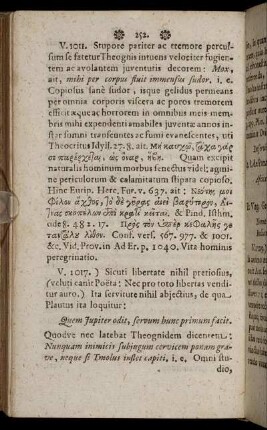 252.
V. 1011. Stupore pariter ac tremore percul-
sum se fatetur Theognis intuens velociter fugien-
tem ac avolantem juventutis decorem: Mox,
ait, mihi per corpus fluit immensus sudor, i. e.
Copiosus sanè sudor, isque gelidus permeans
per omnia corporis viscera ac poros tremorem
efficit, quæ ac horrorem in omnibus meis mem-
bris mihi expedienti amabiles juventæ annos in-
star somni transeuntes ac fumi evanescentes, uti
Theocritus Idyll. 27. 8. ait:
Quam excipit
naturalis hominum morbus senectus videl; agmi-
ne periculorum & calamitatum stipata & jocoso;
Hinc Eurip. Herc. Fur. v. 637. ait:
& Pind. Isthm.
ode 8. 482. 17.
Conf. vers. 167. 977. & 1001.
&c. Vid. Prov. in Ad Er. p. 1040. Vita hominis
peregrinatio.
V. 1017.) Sicuti libertate nihil pretiosius,
(veluti canit Poëta: Nec pro toto libertas vendi-
tur auro.) Ita servitute nihil abjectius, de qua
Plautus ita loquitur:
Quem Jupiter odit, servum hunc primum facit.
Quodve nec latebat Theognidem dicentem:
Nunquam inimicis subjugum cervicem ponam gra-
ve, neque si Tmolus instet capiti, i. e. Omni stu-
dio,